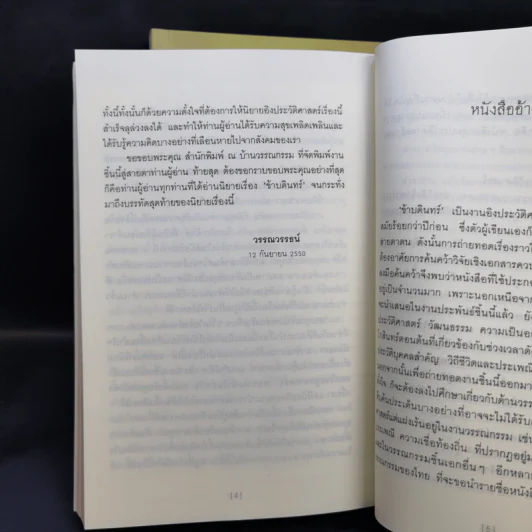 ทั้งนี้ทั้งนั้นก็ด้วยความตั้งใจที่ต้องการให้นิยายอิงประวัติศาสตร์เรื่องนี้
สำเร็จลุล่วงลงได้ และทำให้ท่านผู้อ่านได้รับความสุขเพลิดเพลินและ
ได้รับรู้ความคิดบางอย่างที่เลือนหายไปจากสังคมของเรา
ขอขอบพระคุณ สำนักพิมพ์ ณ บ้านวรรณกรรม ที่จัดพิมพ์งาน
ชิ้นนี้สู่สายตาท่านผู้อ่าน ท้ายสุด ต้องขอกราบขอบพระคุณอย่างที่สุด
ก็คือท่านผู้อ่านทุกท่านที่ได้อ่านนิยายเรื่อง 'ข้าบดินทร์' จนกระทั่ง
มาถึงบรรทัดสุดท้ายของนิยายเรื่องนี้
วรรณวรรธน์
12 กันยายน 2550
[4]
หนังสืออ้า
'ข้าบดินทร์' เป็นงานอิงประวัติศา
สมัยร้อยกว่าปีก่อน ซึ่งตัวผู้เขียนเองก็
สายตาตน ดังนั้นการถ่ายทอดเรื่องราวใ
ต้องอาศัยการค้นคว้าวิจัยเชิงเอกสารควบ
เมื่อค้นคว้าจึงพบว่าหนังสือที่ใช้ประกอ
เป็นจำนวนมาก เพราะนอกเหนือจา
จะนำเสนอในงานประพันธ์ชิ้นนี้แล้ว ยัง
ประวัติศาสตร์ วัฒนธรรม ความเป็นอย
สินทร์ตอนต้นที่เกี่ยวข้องกับช่วงเวลาดัง
ประวัติบุคคลสำคัญ วิถีชีวิตและประเพณี
นอกจากนั้นเพื่อถ่ายทอดงานชิ้นนี้ออกมา
ก็จะต้องลงไปศึกษาเกี่ยวกับด้านวรร
ค้นประเด็นบางอย่างที่อาจจะไม่ได้รับก
แฝงเร้นอยู่ในงานวรรณกรรม เช่น
ความเชื่อท้องถิ่น ที่ปรากฏอยู่ม
ในวรรณกรรมชิ้นเอกอื่นๆ อีกหลาย
วรรณกรรมของไทย ที่จะขอนำรายชื่อหนังสื
[5]